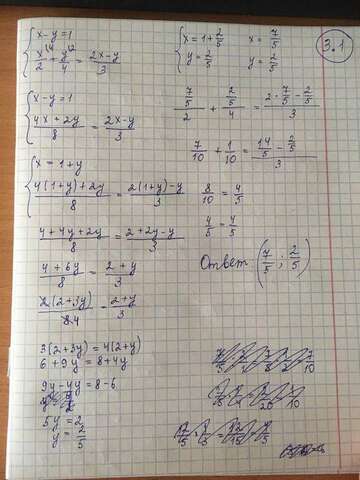 3.1
{x-y=1
x/2 + y/4 = (2x-y)/3
{x-y=1
(4x+2y)/8 = (2x-y)/3
{x = 1+y
(4(1+y)+2y)/8 = (2(1+y)-y)/3
(4+4y+2y)/8 = (2+2y-y)/3
(4+6y)/8 = (2+y)/3
2(2+3y)/8 4 = (2+y)/3
3(2+3y) = 4(2+y)
6+9y = 8+4y
9y-4y = 8-6
5y = 2
y = 2/5
{x = 1+2/5
y = 2/5
x = 7/5
y = 2/5
(7/5)/2 + (2/5)/4 = (2·7/5 - 2/5)/3
7/10 + 1/10 = (14/5 - 2/5)/3
8/10 = 4/5
4/5 = 4/5
Ответ (7/5; 2/5)